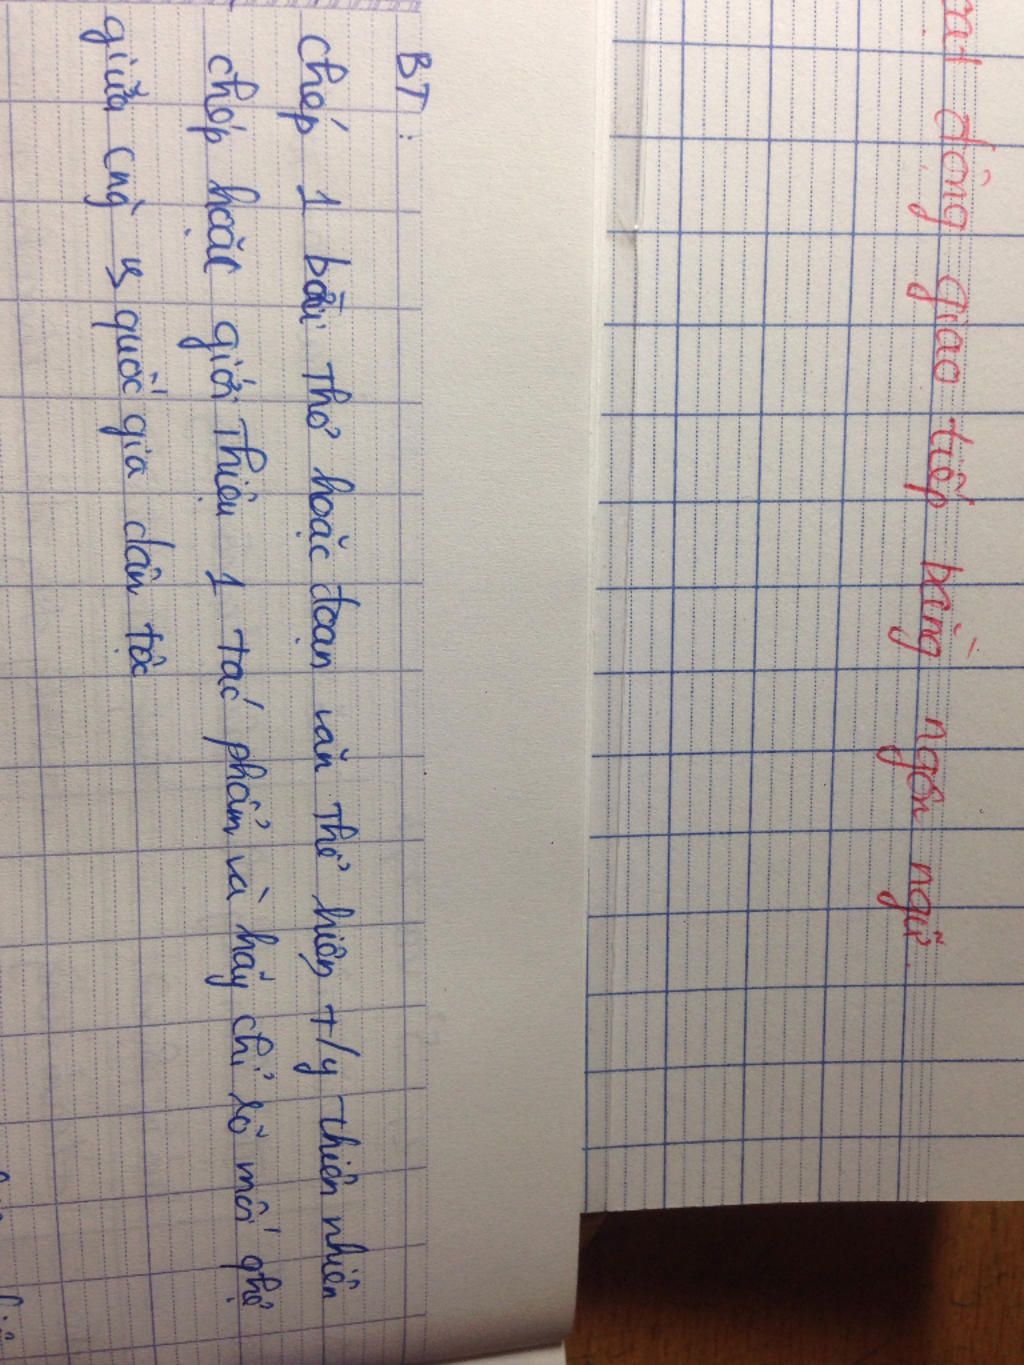 động giao tiếp bằng ngôn ngữ.
BT:
chép 1 bài thơ hoặc đoạn văn thể hiện t/y thiên nhiên
chép hoặc giới thiệu 1 tác phẩm và hãy chỉ rõ mối qhệ
giữa cng vs quốc gia dân tộc